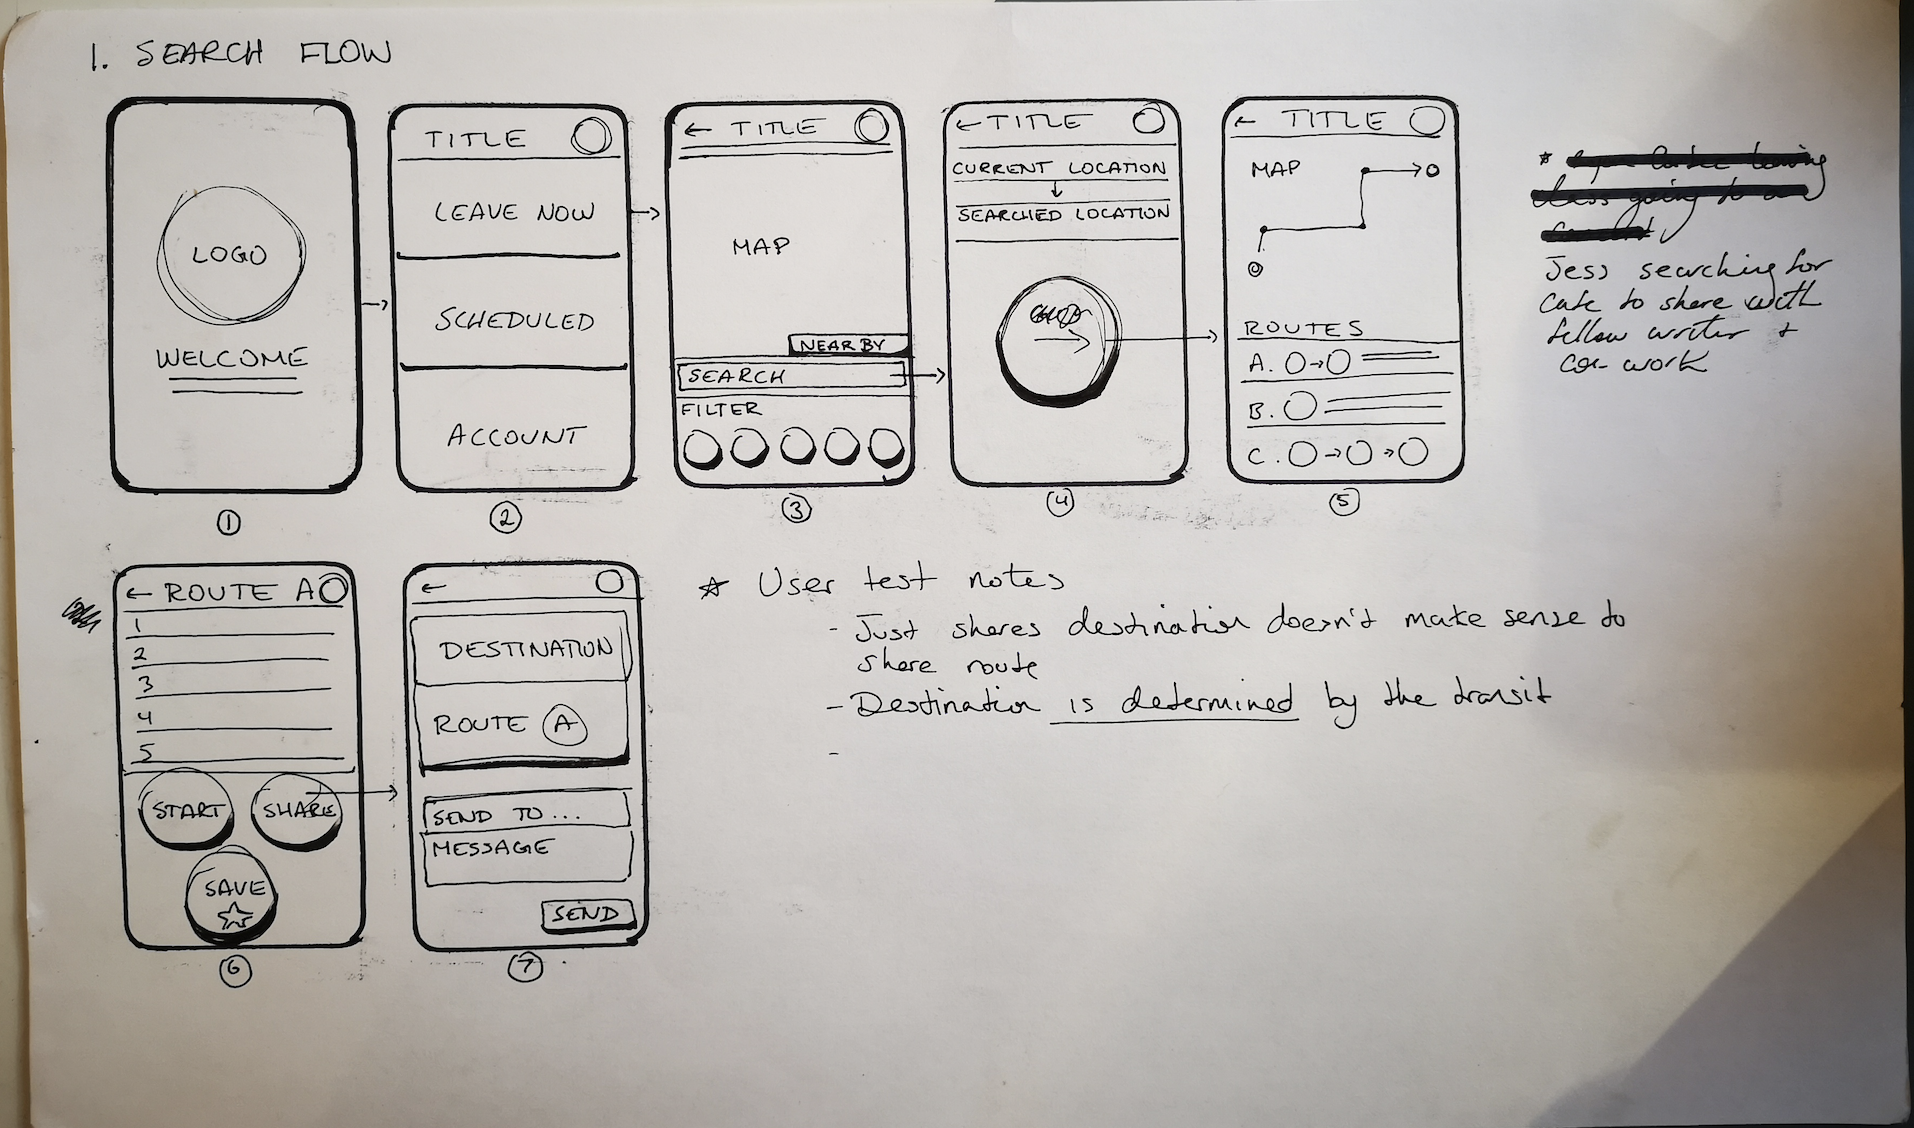 1. SEARCH FLOW
LOGO
WELCOME
1
TITLE
LEAVE NOW
SCHEDULED
ACCOUNT
2
← TITLE
MAP
NEAR BY
SEARCH
FILTER
3
← TITLE
CURRENT LOCATION
↓
SEARCHED LOCATION
→
4
← TITLE
MAP
ROUTES
A.
B.
C.
5
*
leaving
class going to a
Jess searching for
cafe to share with
fellow writer +
co-work
← ROUTE A
1
2
3
4
5
START
SHARE
SAVE
6
←
DESTINATION
ROUTE A
SEND TO...
MESSAGE
SEND
7
☆ User test notes
- Just shares destination doesn't make sense to
share route
- Destination is determined by the transit
-